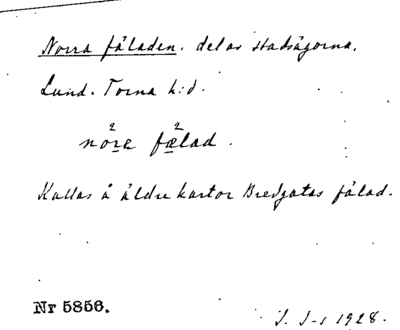 Norra fäladen. del av stadsägorna.
Lund. Torna h:d.
nòra fæ̀lad.
Kallas å äldre kartor Bredgatas fälad.
Nr 5856.
J. J-n 1928.